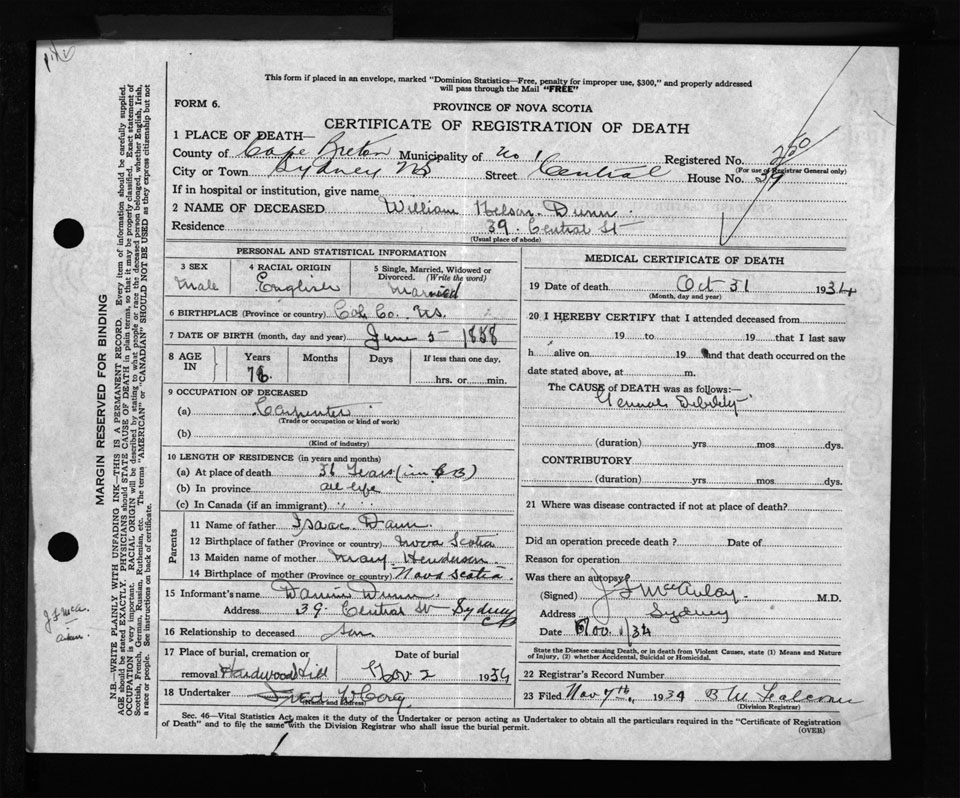 This form if placed in an envelope, marked "Dominion Statistics—Free, penalty for improper use, $300," and properly addressed
will pass through the Mail "FREE"
FORM 6.
PROVINCE OF NOVA SCOTIA
CERTIFICATE OF REGISTRATION OF DEATH
1 PLACE OF DEATH—
County of Cape Breton Municipality of No 1 Registered No. 250
(For use of Registrar General only)
City or Town Sydney NS Street Central House No. 39
If in hospital or institution, give name
2 NAME OF DECEASED William Nelson Dunn
Residence 39 Central St
(Usual place of abode)
PERSONAL AND STATISTICAL INFORMATION
3 SEX Male
4 RACIAL ORIGIN English
5 Single, Married, Widowed or
Divorced. (Write the word)
Married
6 BIRTHPLACE (Province or country) Col. Co. NS.
7 DATE OF BIRTH (month, day and year) June 5 1858
8 AGE IN Years Months Days If less than one day,
76 hrs. or min.
9 OCCUPATION OF DECEASED
(a) Carpenter
(Trade or occupation or kind of work)
(b)
(Kind of industry)
10 LENGTH OF RESIDENCE (in years and months)
(a) At place of death 36 Years (in C B)
(b) In province all life
(c) In Canada (if an immigrant) "
Parents
11 Name of father Isaac Dunn
12 Birthplace of father (Province or country) Nova Scotia
13 Maiden name of mother Mary Henderson
14 Birthplace of mother (Province or country) Nova Scotia
15 Informant's name Dunn
Address 39 Central St Sydney CB
16 Relationship to deceased son
17 Place of burial, cremation or
removal Hardwood Hill
Date of burial
Nov 2 1934
18 Undertaker Fred W Corey
(Name and address)
MEDICAL CERTIFICATE OF DEATH
19 Date of death Oct 31 1934
(Month, day and year)
20 I HEREBY CERTIFY that I attended deceased from
19 to 19 that I last saw
h alive on 19 and that death occurred on
date stated above, at m.
The CAUSE of DEATH was as follows:—
Debility
(duration) yrs. mos. dys.
CONTRIBUTORY
(duration) yrs. mos. dys.
21 Where was disease contracted if not at place of death?
Did an operation precede death? Date of
Reason for operation
Was there an autopsy
(Signed) J F McAulay M.D.
Address Sydney
Date Nov. 1/34
State the Disease causing Death, or in death from Violent Causes, state (1) Means and Nature
of Injury, (2) whether Accidental, Suicidal or Homicidal.
22 Registrar's Record Number
23 Filed Nov 7th, 1934
(Division Registrar)
Sec. 46—Vital Statistics Act, makes it the duty of the Undertaker or person acting as Undertaker to obtain all the particulars required in the "Certificate of Registration
of Death" and to file the same with the Division Registrar who shall issue the burial permit.
(OVER)
MARGIN RESERVED FOR BINDING
N.B.—WRITE PLAINLY WITH UNFADING INK—THIS IS A PERMANENT RECORD. Every item of information should be carefully supplied.
AGE should be stated EXACTLY. PHYSICIANS should STATE CAUSE OF DEATH in plain terms, so that it may be properly classified. Exact statement of
OCCUPATION is very important. RACIAL ORIGIN will be described by stating to what people or race the deceased person belonged, whether English, Irish,
Scottish, French, German, Russian, Ruthenian, etc. The terms "AMERICAN" or "CANADIAN" SHOULD NOT BE USED as they express citizenship but not
a race or people. See instructions on back of certificate.
J F McA.